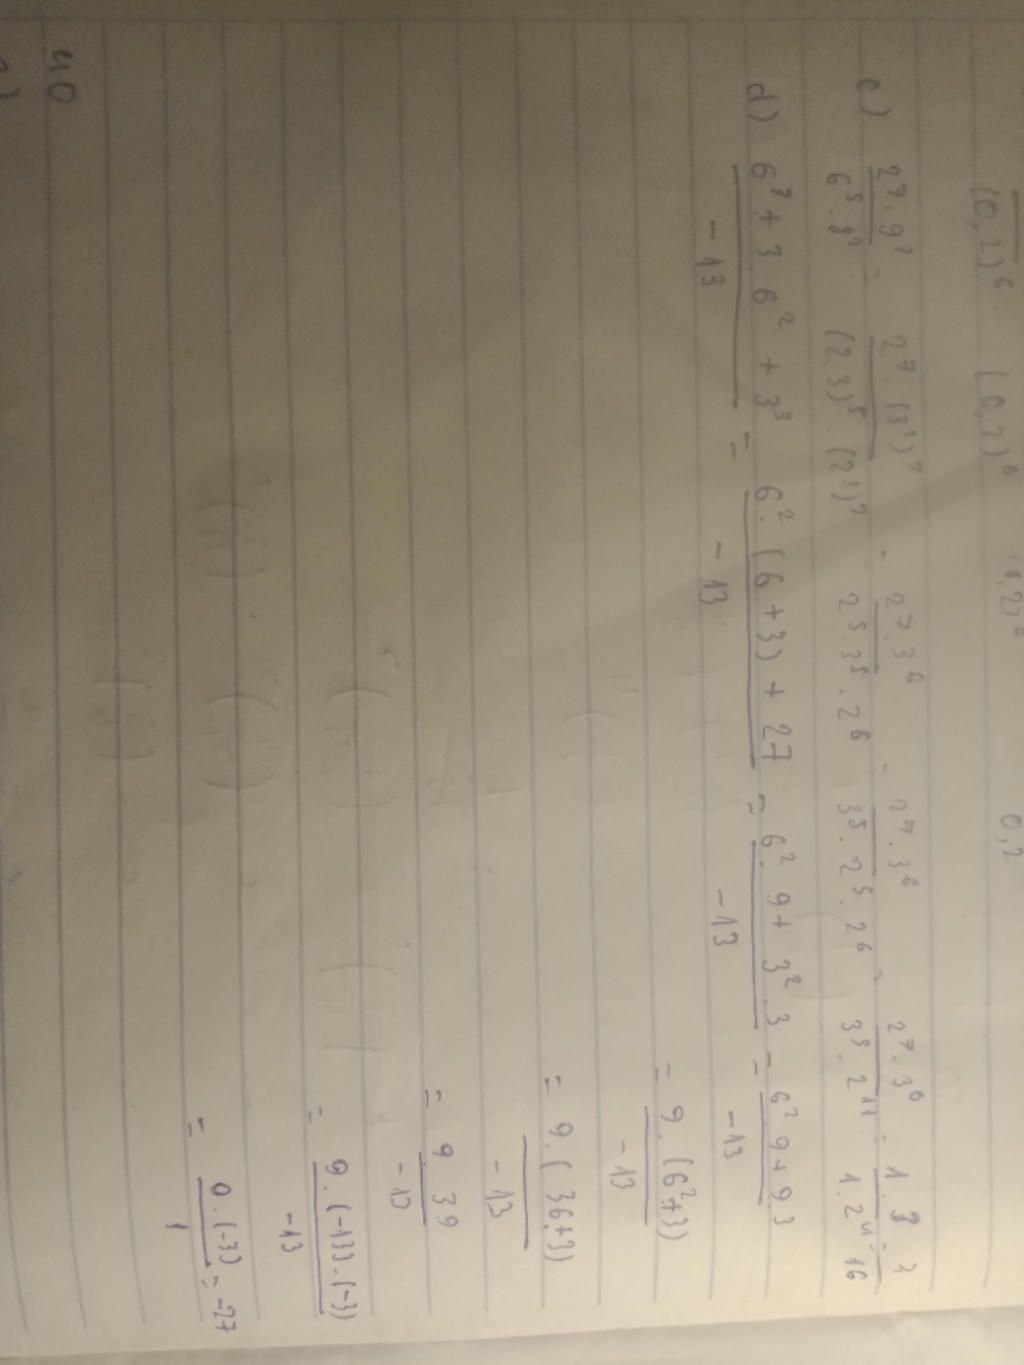 (0,2)⁶ (0,2)⁶ 0,2
c) 2⁷.9³ / 6⁵.8² = 2⁷.(3²)³ / (2.3)⁵.(2³)² = 2⁷.3⁶ / 2⁵.3⁵.2⁶ = 2⁷.3⁶ / 3⁵.2⁵.2⁶ = 2⁷.3⁶ / 3⁵.2¹¹ = 1.3 / 1.2⁴ = 3 / 16
d) 6³ + 3.6² + 3³ / -13 = 6².(6 + 3) + 27 / -13 = 6².9 + 3².3 / -13 = 6².9 + 9.3 / -13
= 9.(6²+3) / -13
= 9.(36+3) / -13
= 9.39 / -13
= 9.(-13).(-3) / -13
= 9.(-3) / 1 = -27
40